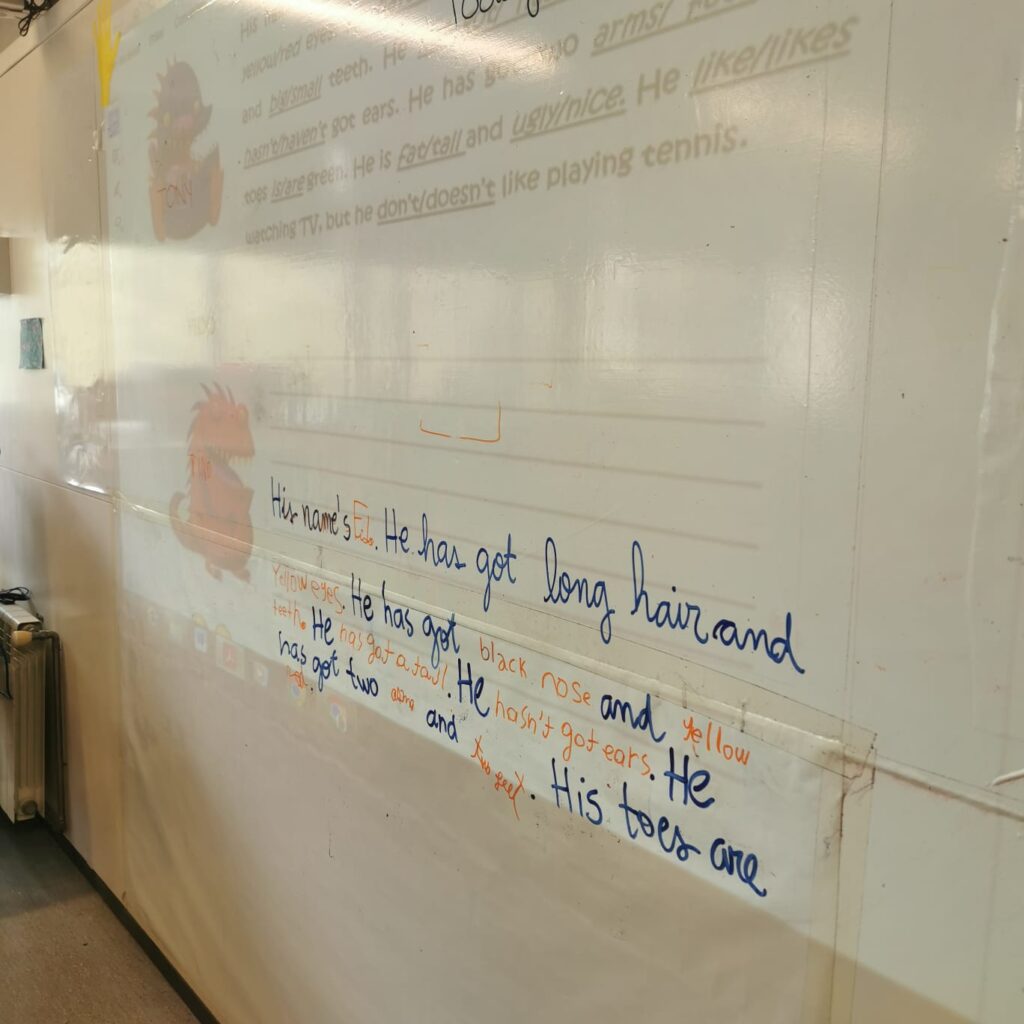 Today
His
yellow/red eyes
and big/small teeth. He
two arms/
hasn't/haven't got ears. He has got
toes is/are green. He is fat/tall and ugly/nice. He like/likes
watching TV, but he don't/doesn't like playing tennis.
TONY
His name's . He has got long hair and
Yellow eyes. He has got black nose and yellow
teeth. He has got a tail. He hasn't got ears. He
has got two and two . His toes are
red.